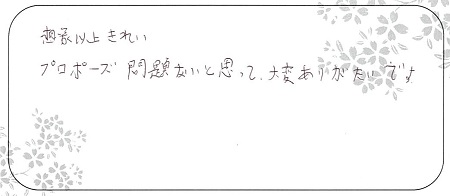 想像以上きれい
プロポーズ問題ないと思って、大変ありがたいです